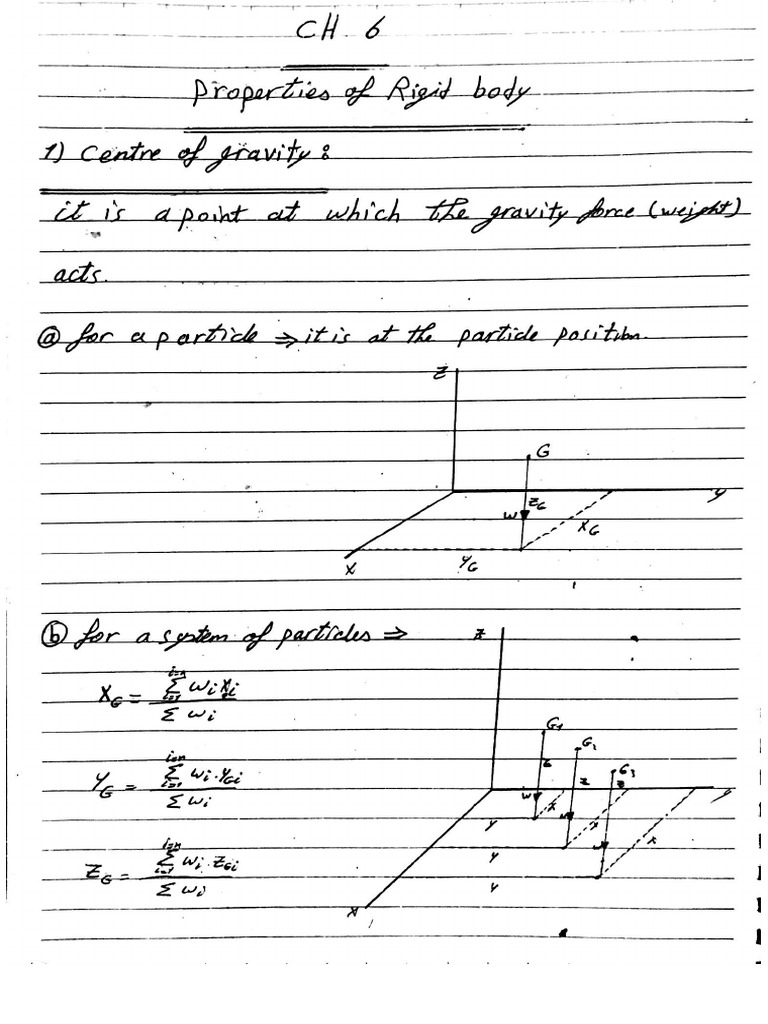 CH. 6
Properties of Rigid body
1) Centre of gravity:
it is a point at which the gravity force (weight)
acts.
ⓐ for a particle ⇒ it is at the particle position.
Z
G
Z_G
W
y
X_G
X
Y_G
ⓑ for a system of particles ⇒
Z
X_G = \frac{\sum_{i=1}^{i=n} w_i x_i}{\sum w_i}
G_1
G_2
G_3
Z
Z
Z
Y_G = \frac{\sum_{i=1}^{i=n} w_i . y_{Gi}}{\sum w_i}
W
W
W
y
X
X
X
Y
Y
Y
Z_G = \frac{\sum_{i=1}^{i=n} w_i . z_{Gi}}{\sum w_i}
X